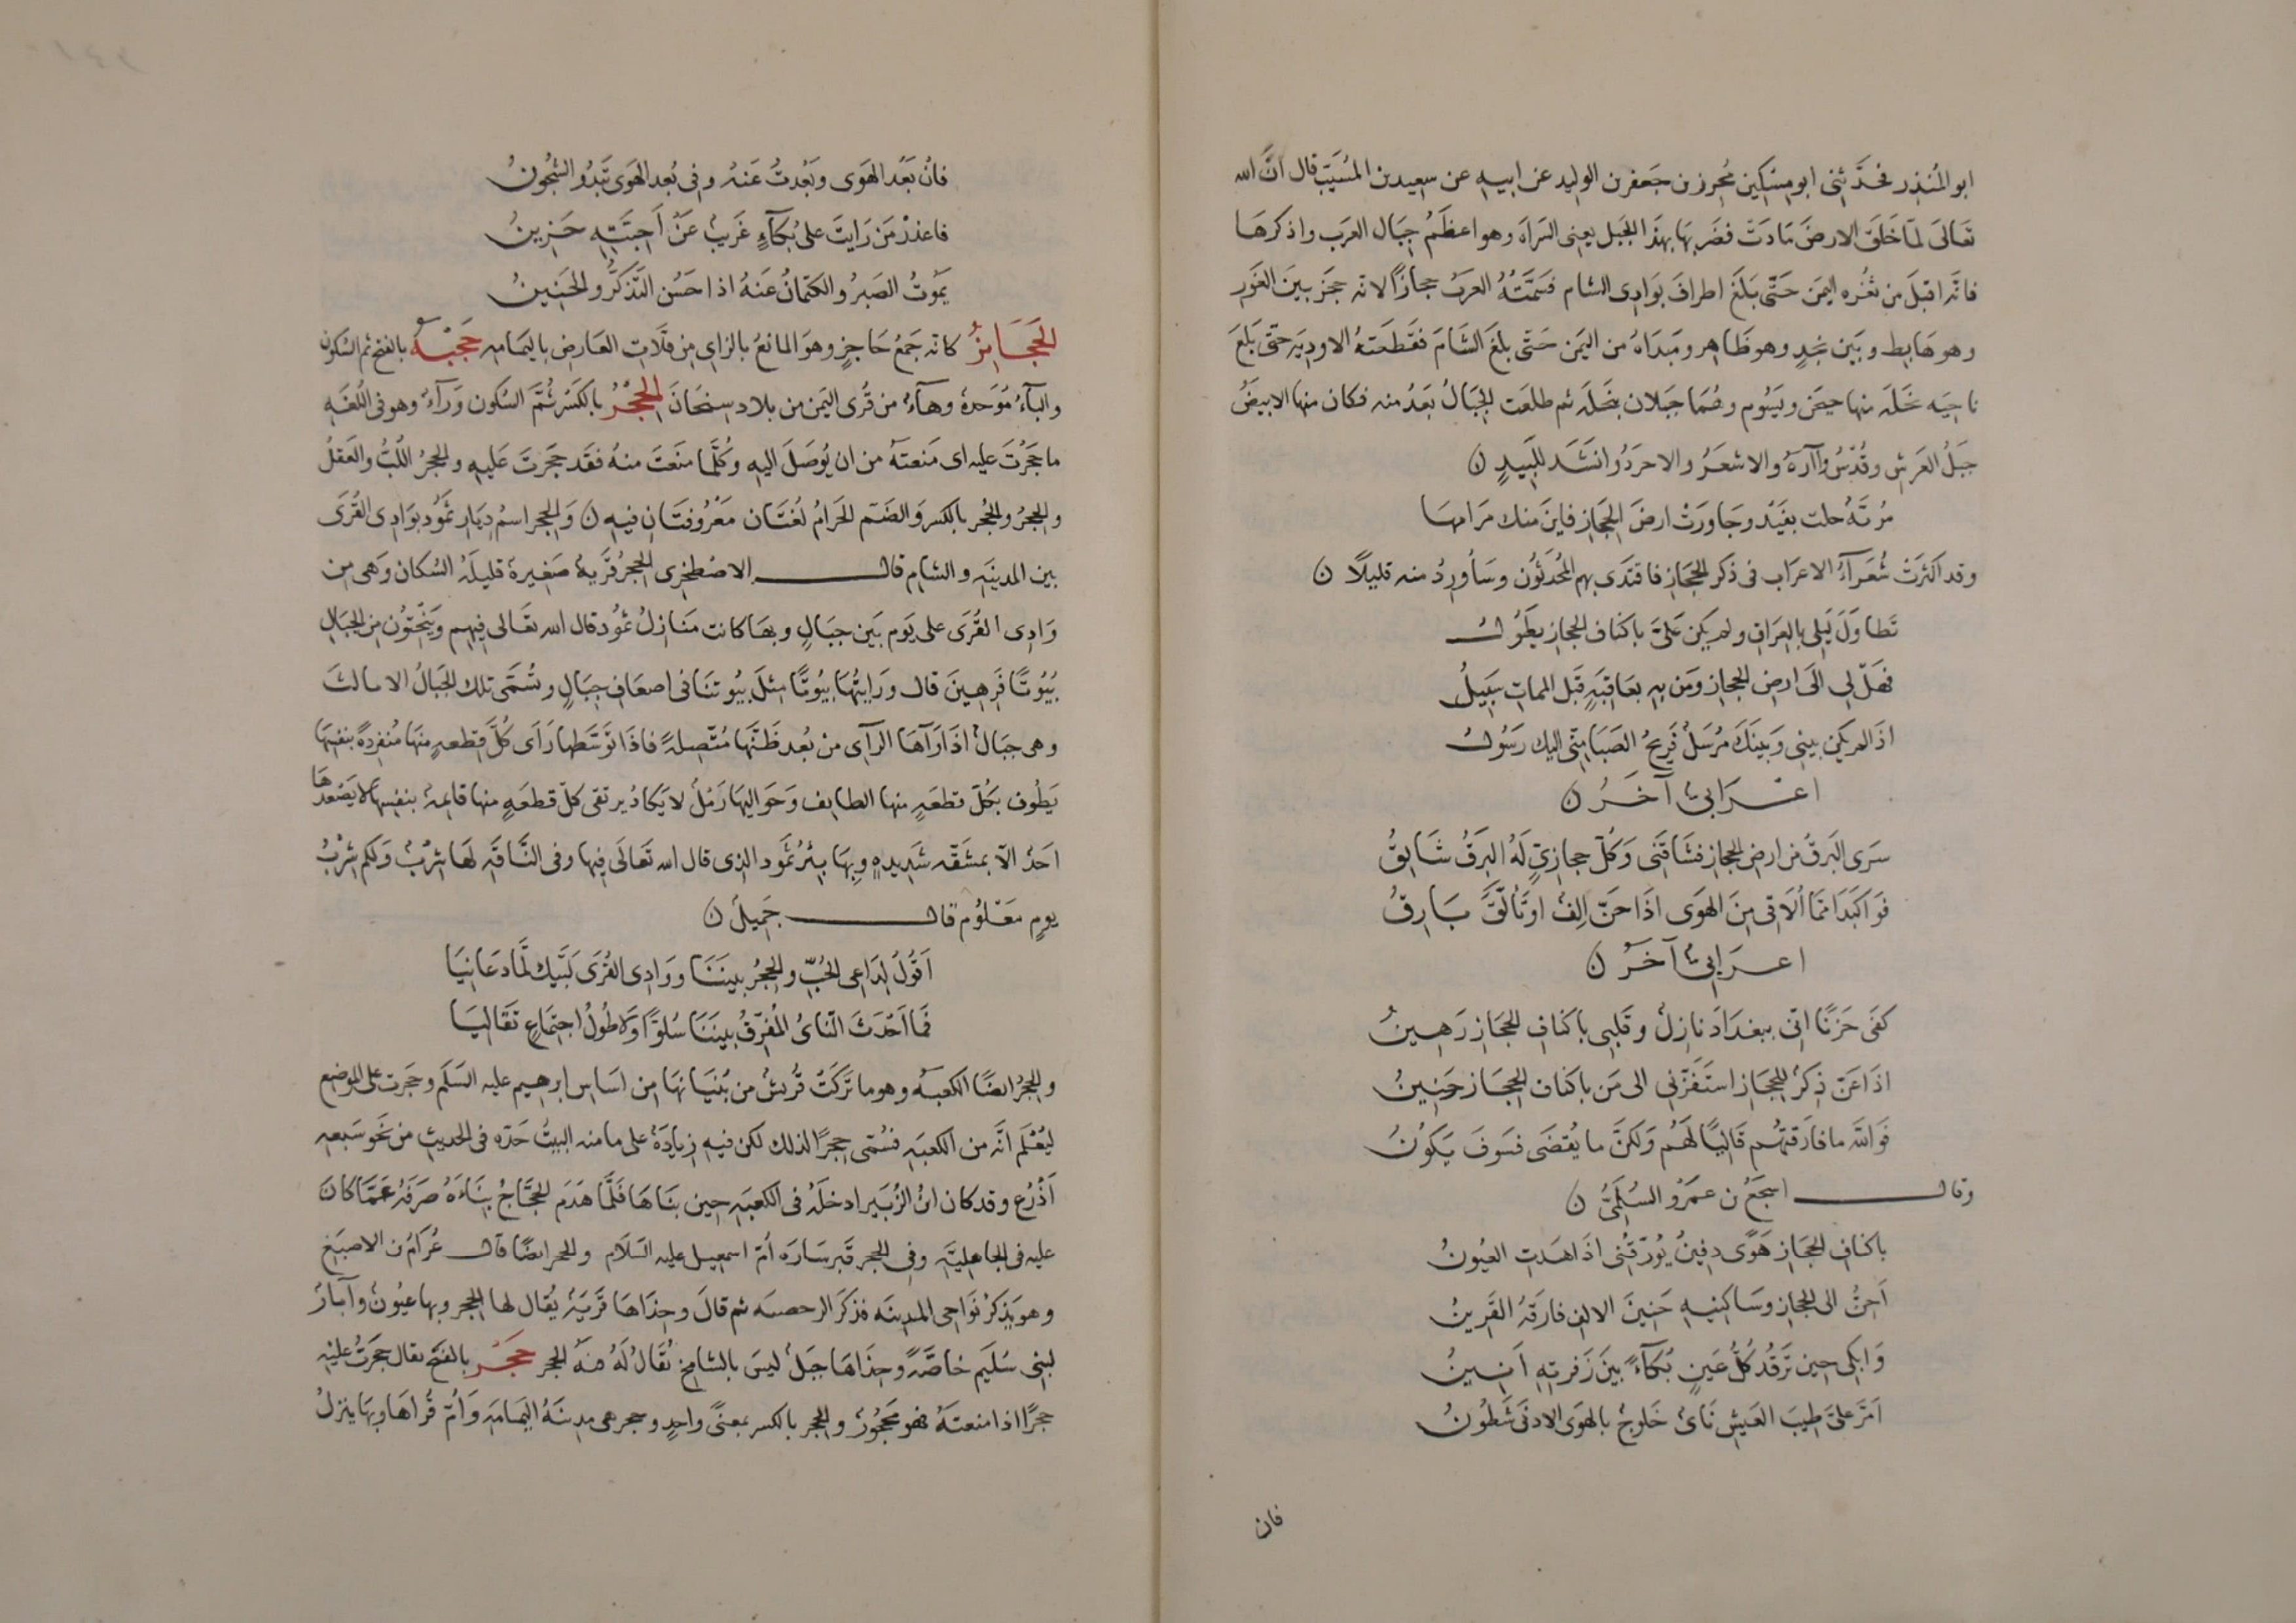 ابو المُنذِر فحَدَّثنِى ابو مِسْكِين مُحرِز بن جَعفَر بن الوليد عن ابيه عن سعيد بن المُسَيَّب قال انَّ الله
تعَالَى لمّا خَلَقَ الارضَ مَادَت فضَربهَا بهذَا الجَبل يعنى السَراة وهو اعظَمُ جِبَال العَرَب واذكرهَا
فانّه اقبَلَ من ثغُره اليمَن حَتّى بَلَغَ اطرافَ بوَادِى الشام فسَمَّتهُ العرَبُ حجازًا لانه حجَز بينَ الغَور
وهو هَابِط وبَين نجدٍ وهو ظَاهِر ومَبدَاهُ من اليمَن حَتّى بلغَ الشَامَ فقَطعَتهُ الاوديَه حتّى بَلَغَ
ناحِيَه نخَلَه منها حيَض ويَسُوم وهُمَا جَبلان بنَخلَه ثم طلعَت الجِبَالُ بَعدُ منه فكان منها الابيَضُ
جبَلُ العَرش وقُدْسُ وآارَة والاشعَرُ والاجرَدُ وانشَدَ للبَيدٍ ن
مُريّهُ حلت بفَيْد وجَاوَرَتْ ارضَ الحِجَازِ فاينَ منك مَرامهَا
وقد اكثرَتْ شُعَرآءُ الاعرَاب فى ذكر الحِجَاز فاقتَدَى بهم المُحدَثُون وسَأورِدُ منه قليلاً ن
تَطاوَلَ لَيلى بالعِرَاقِ ولم يكن عَلىَّ باكنَاف الحجازِ يطَوُل
فهَل لى الَى ارضِ الحجازِ ومَن بِهِ بعَاقِبَةٍ قَبل المماتِ سَبِيلُ
اذَا لم يكن بينى وبَينَكَ مُرسَلٌ فَريحُ الصَبَا مِنّى اليك رَسُول
اعرَابىٌ آخَرُ ن
سَرَى البَرقُ من ارضِ الحجاز فشَاقَنى وَكُلّ حجازىٍّ لَهُ البَرقُ شَايِقُ
فوَا كَبَدَا ممَّا اُلاَقى مِنَ الهَوَى اذَا حَنّ اِلفٌ اوتَألّقَ بَارِقُ
اعرَابىٌ آخَرُ ن
كفَى حَزَنًا انّى ببغدَادَ نازِلٌ وقَلبى باكنَافِ الحجَازِ رَهِينُ
اذَا عَنّ ذِكرُ الحِجَازِ استَفزّنى الى مَن باكنَاف الحِجَازِ حَنِينُ
فَوَاللهِ ما فارَقتُهُم قَاليًا لَهُم وَلكنَّ ما يُقضَى فسَوفَ يكَوُنُ
وقال اشجَعُ بن عمَرُو السُلَمىُّ ن
باكنافِ الحجَازِ هَوًى دفِينُ يُورّقُنى اذَا هَدَتِ العيُونُ
اَحِنُّ الى الحِجازِ وسَاكِنيهِ حَنِينَ الالفِ فارَقهُ القَرِينُ
وَابكى حِينَ تَرقُدُ كُلُّ عَينٍ بُكآءً بَينَ زَفرتِهِ اَنِينُ
اَمَرّ علىَّ طِيبَ العَيشِ نَاىٌ خَلوجٌ بالهَوَى الادنَى شَطُونُ
فان
فانْ بَعُد الهَوَى وبَعُدتُ عَنهُ وفى بُعد الهَوَى تَبدُو الشُجُونُ
فاعذرْ مَن رَايتَ على بُكآءٍ غَرِيبٌ عَنْ اَحِبَّتِهِ حَزينُ
يمَوُتُ الصَبرُ والكتمانُ عَنهُ اذا حَسُن التَذَكُّرُ والحَنِينُ
الحَجَايِزُ كانه جَمعُ حَاجزٍ وهوَ المانعُ بالزاىِ مِن قلاَتِ العَارِضِ باليمَامه حَجْبَه بالفتح ثم السُكون
والبآءُ مُوَحدة وهآءُ من قُرى اليمَن من بلاد سِنحَانَ الحِجْرُ بالكَسْر ثُمَّ السُكون وَرآءٌ وهو فى اللُغَه
ما حَجَرْتَ عليه اى مَنعتَهُ من ان يُوصَلَ اليهِ وكُلّما منَعتَ منهُ فقَد حَجَرتَ عَليهِ والحجرُ اللُبُّ والعَقلُ
والحِجرُ والحُجر بالكسر وَالضَمّ الحَرامُ لغُتَان مَعْرُوفتَانِ فيهِ ن وَالحِجر اسمُ دِيَارِ ثمُود بوَادِى القُرَى
بين المدينَه والشام قال الاصْطخرى الحجرُ قَرية صَغِيرة قليلَهُ السُكان وَهى من
وَادِى القُرَى على يَوم بَين جبَالٍ وبهَا كانت مَنَازِلُ ثمُود قال الله تعَالى فيهِم وَينحِتوُن مِنَ الجبَالِ
بُيُوتًا فَرِهِينَ قال ورَايتُهَا بيُوتًا مِثلَ بيُوتنَا فى اضعَافِ جبَالٍ وتُسَمّى تلك الجبَالُ الاثالث
وهى جبَالٌ اذَا رَآهَا الرآى من بُعد ظَنَّهَا مُتّصِلةً فاذَا توَسّطها رَاَى كُلَّ قِطعهٍ منهَا مُنفردةً بنَفسِهَا
يَطُوف بكُلّ قطعَهٍ منها الطايف وَحَوَاليهَا رَملٌ لا يكَادُ يرتقى كلّ قطعَهٍ منهَا قايمة بنفسِهَا لا يَصعَدهَا
احَدٌ الاّ بمشَقّه شَدِيدهٍ وبهَا بِئرُ ثمُود الذى قال الله تعَالَى فِيها وفى النَّاقَه لهَا شِرْبٌ وَلكم شِرْبُ
يومٍ مَعْلُومٍ قال جَمِيلٌ ن
اَقُولُ لدَاعى الحُبِّ والحِجرُ بيننَا ووَادِى القُرَى لَبَّيكَ لمَّا دعَانِيَا
فَما اَحْدَثَ النَّاىُ المُفَرِّقُ بينَنَا سُلوًّا وَلا طُولُ اجتمَاعٍ تقَالِيَا
والحِجرُ ايضًا الكعبَه وهو ما تَرَكَتْ قُريشٌ من بُنيَانهَا مِن اسَاسِ ابرهِيم عليه السَلَم وحَجَرت على الموضع
ليُعْلَم انَّه من الكعبَه فسُمّى حِجرًا لذلك لكن فيهِ زِيَادَةٌ على ما منه البيتُ حَدّه فى الحديثِ من نحَو سَبعه
اَذْرُع وقد كان ابنُ الزُبَير ادخلَهُ فى الكعبَه حِين بنَاهَا فَلمّا هَدَم الحجَّاجُ بِنَاءَهُ صَرَفَهُ عَمّا كان
عليه فى الجاهليَّه وفى الحِجر قَبر سَارَه اُمّ اسمعيل عليه السَلاَم والحجر ايضًا قال عُرَّامُ بن الاصبَغ
وهو يَذكرُ نَوَاحى المدينَه فذكَرَ الرحصيه ثم قالَ وحِذاهَا قَريَهٌ يُقال لها الحِجر وبهَا عيُونٌ وآبَارٌ
لبنى سُلَيم خاصَّةً وحِذَاهَا جبَلٌ ليسَ بالشامخ يُقَالُ لَهُ قنّه الحجر حَجْر بالفتح يقال حجَرتُ عليه
حجرًا اذا منعتَهُ فهو مَحجُورٌ والحِجر بالكسر بمعنًى واحِدٍ وحجر هى مدِينَهُ اليمَامَه وَاُمّ قُرَاهَا وبهَا ينزلُ